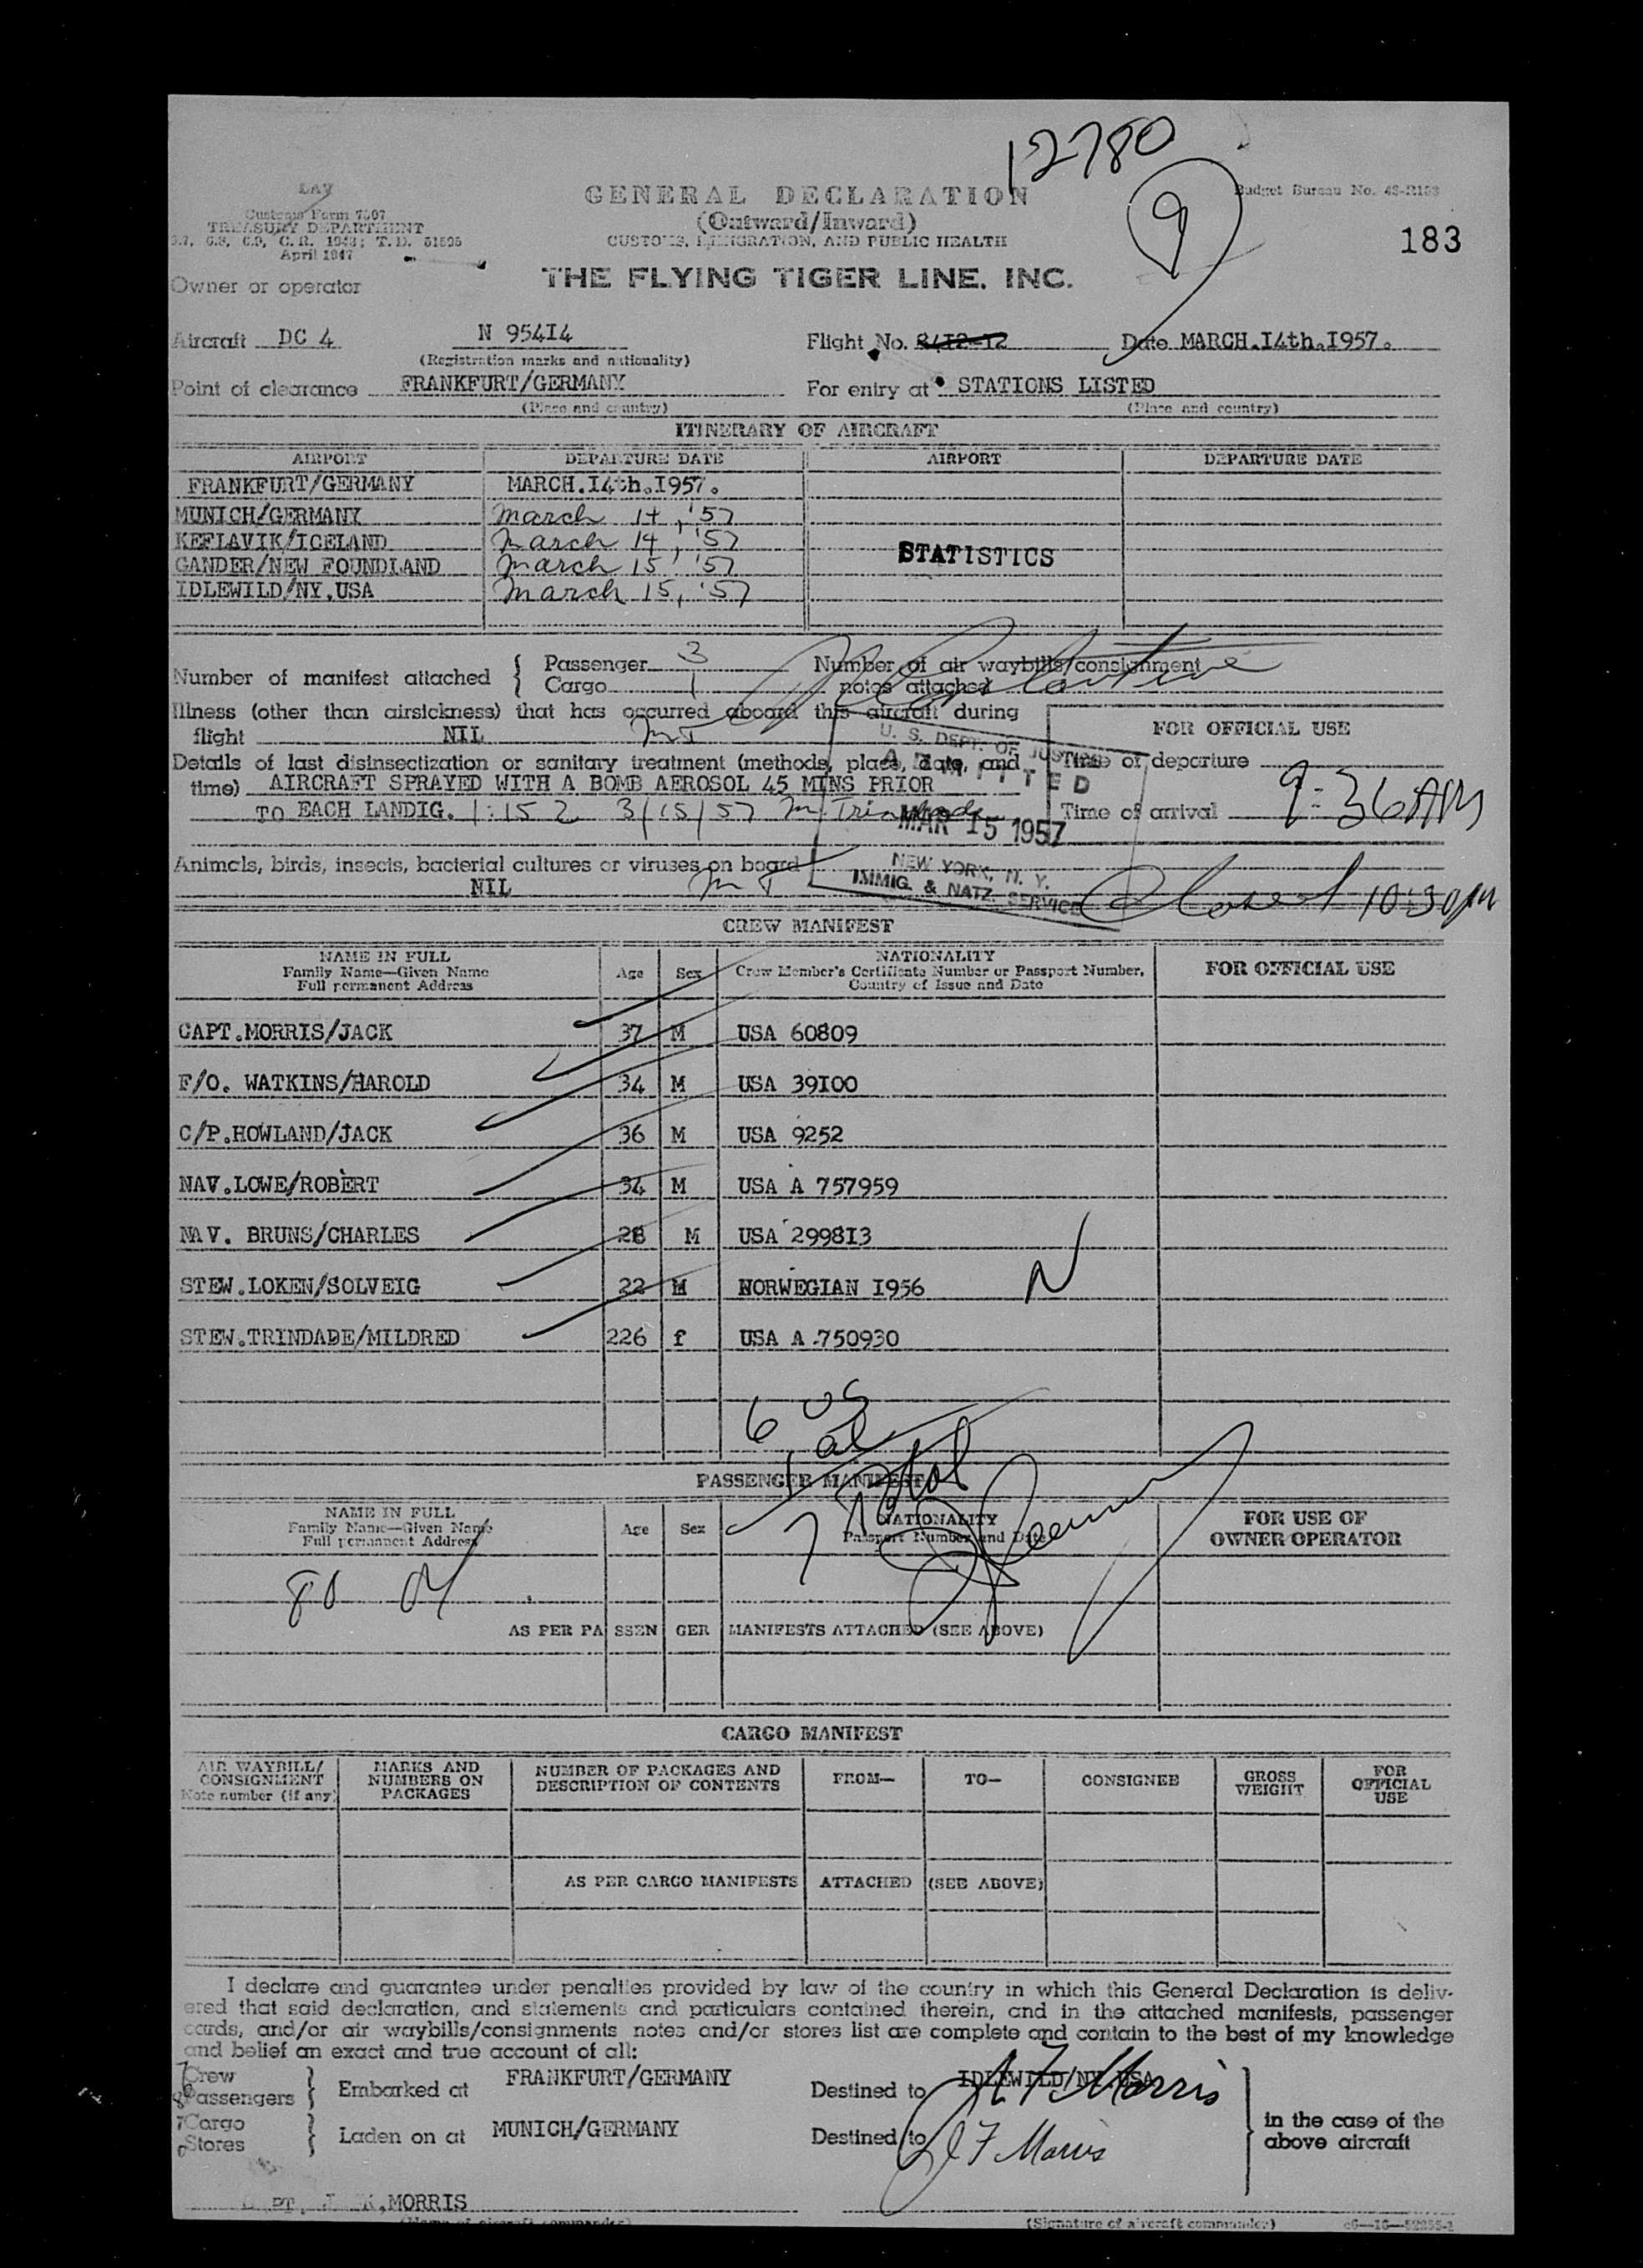 12780
9
DAY
Customs Form 7507
TREASURY DEPARTMENT
6.7, 6.8, 6.9, C. R. 1943; T. D. 51595
April 1947
GENERAL DECLARATION
(Outward/Inward)
CUSTOMS, IMMIGRATION, AND PUBLIC HEALTH
Budget Bureau No. 43-R103
183
Owner or operator THE FLYING TIGER LINE. INC.
Aircraft DC 4 N 954I4 Flight No. Date MARCH.I4th.I957.
(Registration marks and nationality)
Point of clearance FRANKFURT/GERMANY For entry at STATIONS LISTED
(Place and country) (Place and country)
ITINERARY OF AIRCRAFT
AIRPORT DEPARTURE DATE AIRPORT DEPARTURE DATE
FRANKFURT/GERMANY MARCH.I4th.I957.
MUNICH/GERMANY March 14, '57
KEFLAVIK/ICELAND March 14, '57
STATISTICS
GANDER/NEW FOUNDLAND March 15, '57
IDLEWILD/NY.USA March 15, '57
Number of manifest attached { Passenger 3 Number of air waybills/consignment
Cargo 1 notes attached
Illness (other than airsickness) that has occurred aboard this aircraft during
flight NIL MT
FOR OFFICIAL USE
Details of last disinsectization or sanitary treatment (methods, place, date, and
time) AIRCRAFT SPRAYED WITH A BOMB AEROSOL 45 MINS PRIOR
TO EACH LANDIG. 1:15 Z 3/15/57 M. Trindade
Time of departure
Time of arrival 9:36 AM
U. S. DEPT. OF JUSTICE
ADMITTED
MAR 15 1957
NEW YORK, N. Y.
IMMIG. & NATZ. SERVICE
Animals, birds, insects, bacterial cultures or viruses on board
NIL MT
Closed 10:30 pm
CREW MANIFEST
NAME IN FULL
Family Name—Given Name
Full permanent Address
Age Sex
NATIONALITY
Crew Member's Certificate Number or Passport Number,
Country of Issue and Date
FOR OFFICIAL USE
CAPT.MORRIS/JACK 37 M USA 60809
F/O. WATKINS/HAROLD 34 M USA 39I00
C/P.HOWLAND/JACK 36 M USA 9252
NAV.LOWE/ROBERT 34 M USA A 757959
NAV. BRUNS/CHARLES 28 M USA 2998I3
STEW.LOKEN/SOLVEIG 22 M NORWEGIAN I956 N
STEW.TRINDADE/MILDRED 226 f USA A.750930
6 US
1 al
7 Total
PASSENGER MANIFEST
NAME IN FULL
Family Name—Given Name
Full permanent Address
Age Sex
NATIONALITY
Passport Number and Date
FOR USE OF
OWNER OPERATOR
80
AS PER PASSENGER MANIFESTS ATTACHED (SEE ABOVE)
CARGO MANIFEST
AIR WAYBILL/
CONSIGNMENT
Note number (if any)
MARKS AND
NUMBERS ON
PACKAGES
NUMBER OF PACKAGES AND
DESCRIPTION OF CONTENTS
FROM—
TO—
CONSIGNEE
GROSS
WEIGHT
FOR
OFFICIAL
USE
AS PER CARGO MANIFESTS ATTACHED (SEE ABOVE)
I declare and guarantee under penalties provided by law of the country in which this General Declaration is deliv-
ered that said declaration, and statements and particulars contained therein, and in the attached manifests, passenger
cards, and/or air waybills/consignments notes and/or stores list are complete and contain to the best of my knowledge
and belief an exact and true account of all:
Crew
Passengers } Embarked at FRANKFURT/GERMANY Destined to IDLEWILD/NY.USA
J F Morris
Cargo
Stores } Laden on at MUNICH/GERMANY Destined to
J F Morris
in the case of the
above aircraft
MORRIS
(Name of aircraft commander) (Signature of aircraft commander)